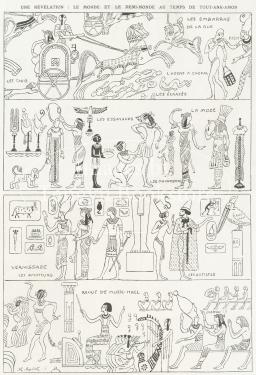 UNE RÉVÉLATION : LE MONDE ET LE DEMI-MONDE AU TEMPS DE TOUT-ANK-AMON
LES EMBARRAS
DE LA RUE
LES TAXIS
L'AGENT À CHEVAL
LES ÉCRASÉS
LES ESSAYAGES
LA MODE
VERNISSAGE
LES AMATEURS
LES ARTISTES
REVUE DE MUSIC-HALL